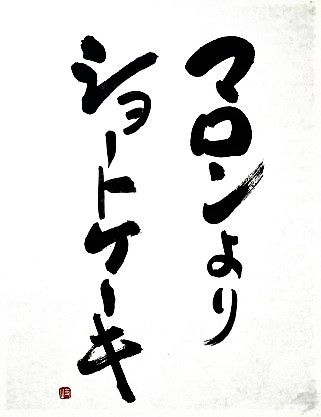 マロンより
ショートケーキ